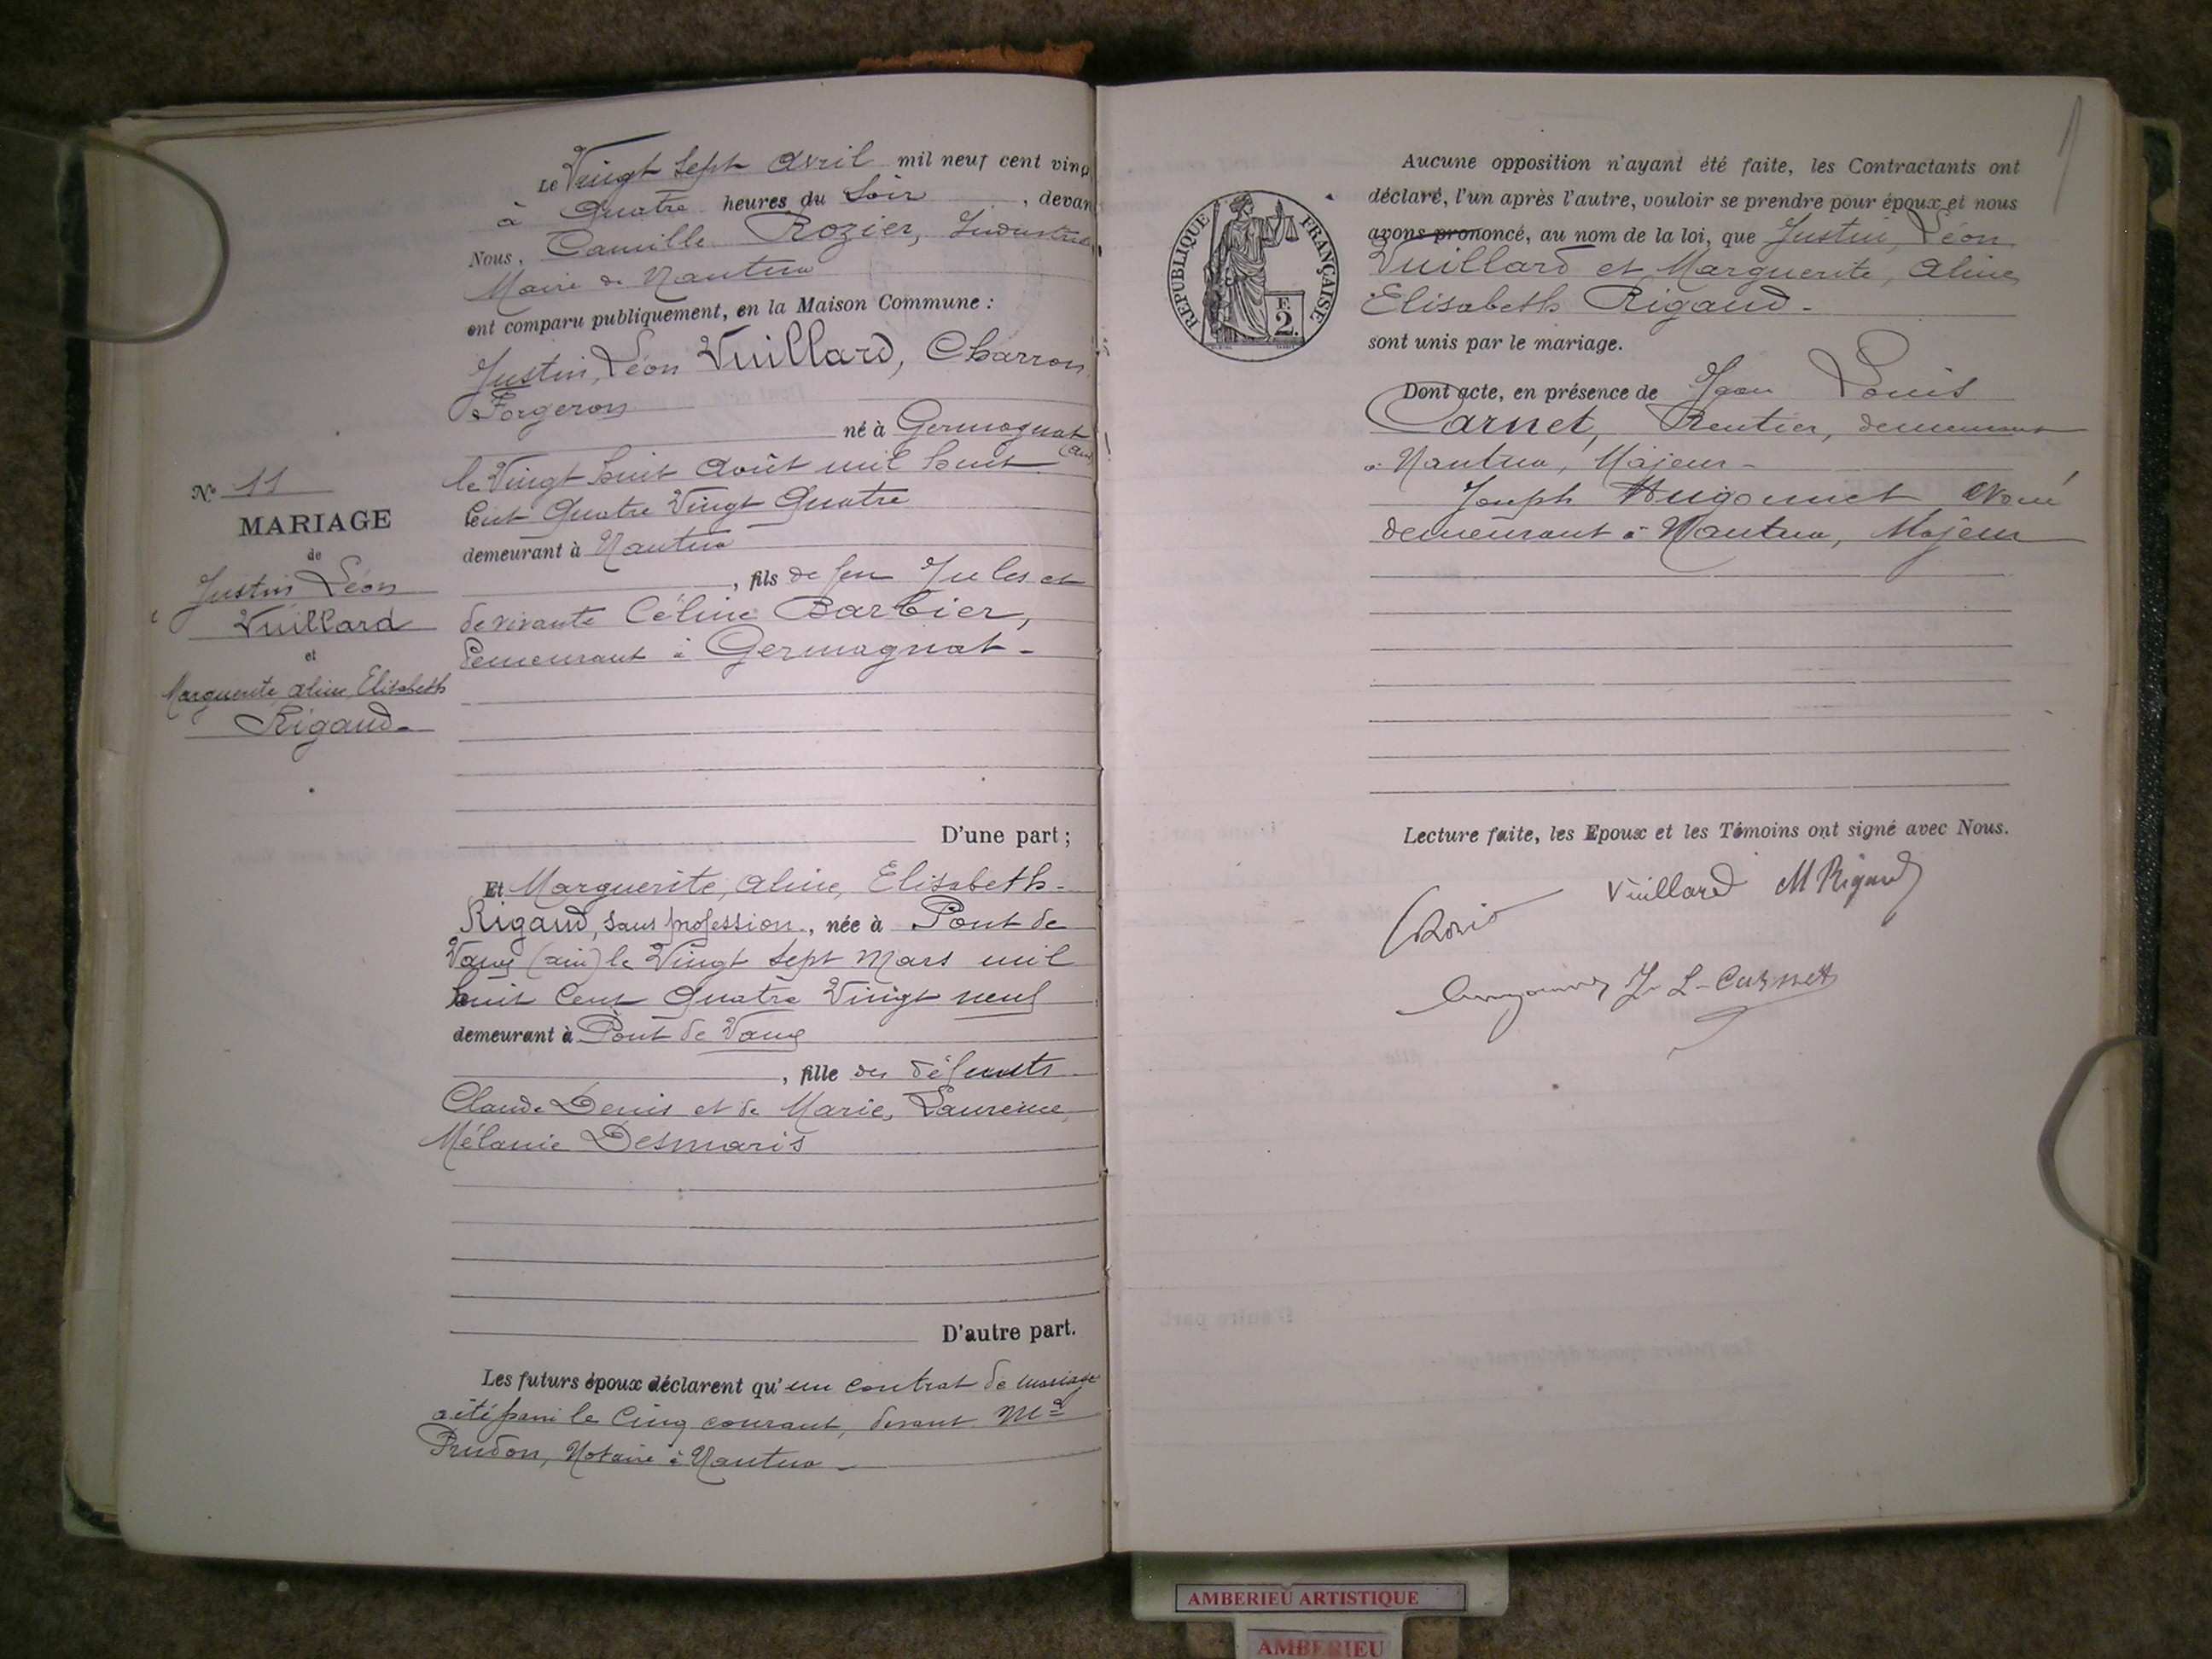 Le Vingt Sept Avril mil neuf cent ving
à Quatre heures du Soir, devan
Nous, Camille Rozier, Industriel
Maire de Nantua
ont comparu publiquement, en la Maison Commune :
Justin, Léon Vuillard, Charron
Forgeron
né à Germagnat
(Ain)
le Vingt huit Août mil huit
Cent Quatre Vingt Quatre
demeurant à Nantua
, fils de feu Jules et
de vivante Céline Barbier,
demeurant à Germagnat -
D'une part ;
Et Marguerite, Aline, Elisabeth
Rigaud, sans profession, née à Pont de
Vaux (Ain) le Vingt Sept Mars mil
huit Cent Quatre Vingt neuf
demeurant à Pont de Vaux
, fille des défunts
Claude Denis et de Marie, Laurence,
Mélanie Desmaris
D'autre part.
Les futurs époux déclarent qu'un contrat de mariage
a été passé le Cinq courant, devant Me
Prudon, Notaire à Nantua -
No 11
MARIAGE
de
Justin Léon
Vuillard
et
Marguerite, Aline, Elisabeth
Rigaud -
RÉPUBLIQUE FRANÇAISE
F.
2.
Aucune opposition n'ayant été faite, les Contractants ont
déclaré, l'un après l'autre, vouloir se prendre pour époux et nous
avons prononcé, au nom de la loi, que Justin, Léon
Vuillard et Marguerite, Aline
Elisabeth Rigaud -
sont unis par le mariage.
Dont acte, en présence de Jean Louis
Carnet, Rentier, demeurant
à Nantua, Majeur -
Joseph Hugonnet Avoué
demeurant à Nantua, Majeur
Lecture faite, les Epoux et les Témoins ont signé avec Nous.
Vuillard M Rigaud
J. L. Carnet
AMBERIEU ARTISTIQUE
AMBERIEU